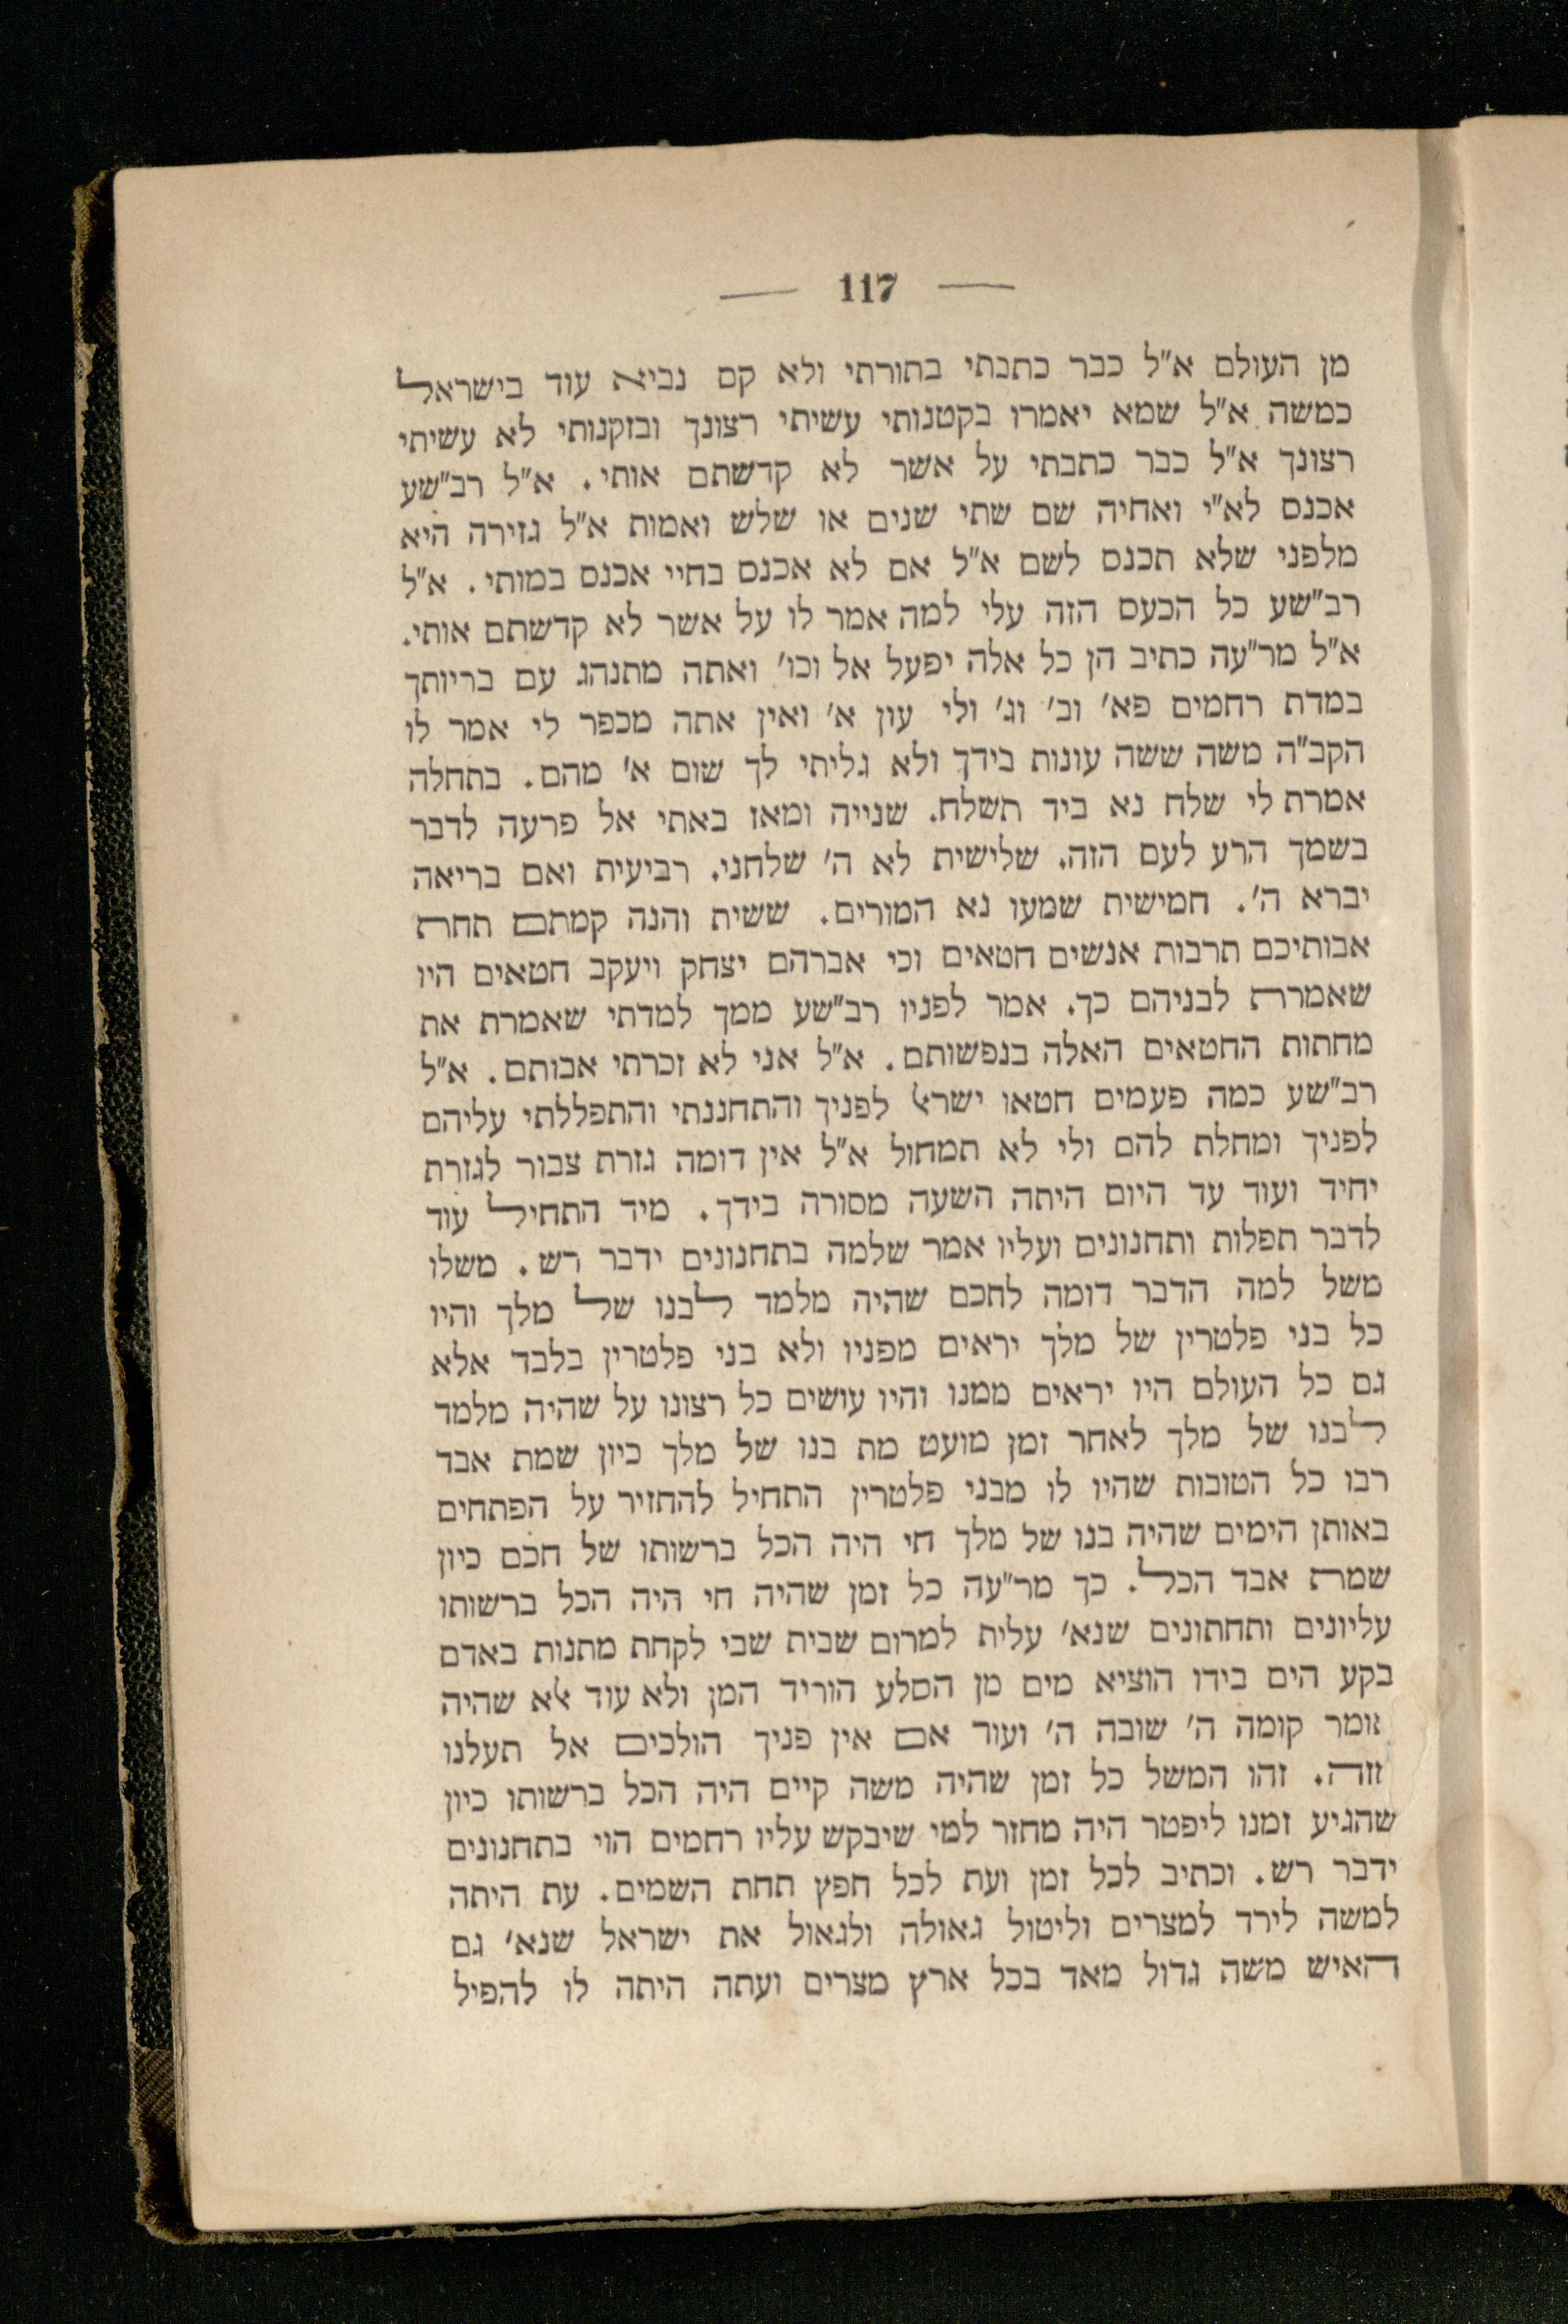 — 117 —
מן העולם א"ל כבר כתבתי בתורתי ולא קם נביא עוד בישראל
כמשה א"ל שמא יאמרו בקטנותי עשיתי רצונך ובזקנותי לא עשיתי
רצונך א"ל כבר כתבתי על אשר לא קדשתם אותי. א"ל רב"שע
אכנס לא"י ואחיה שם שתי שנים או שלש ואמות א"ל גזירה היא
מלפני שלא תכנס לשם א"ל אם לא אכנס בחיי אכנס במותי. א"ל
רב"שע כל הכעס הזה עלי למה אמר לו על אשר לא קדשתם אותי.
א"ל מר"עה כתיב הן כל אלה יפעל אל וכו' ואתה מתנהג עם בריותך
במדת רחמים פא' וב' וג' ולי עון א' ואין אתה מכפר לי אמר לו
הקב"ה משה ששה עונות בידך ולא גליתי לך שום א' מהם. בתחלה
אמרת לי שלח נא ביד תשלח. שנייה ומאז באתי אל פרעה לדבר
בשמך הרע לעם הזה. שלישית לא ה' שלחני. רביעית ואם בריאה
יברא ה'. חמישית שמעו נא המורים. ששית והנה קמתם תחת
אבותיכם תרבות אנשים חטאים וכי אברהם יצחק ויעקב חטאים היו
שאמרת לבניהם כך. אמר לפניו רב"שע ממך למדתי שאמרת את
מחתות החטאים האלה בנפשותם. א"ל אני לא זכרתי אבותם. א"ל
רב"שע כמה פעמים חטאו ישראל לפניך והתחננתי והתפללתי עליהם
לפניך ומחלת להם ולי לא תמחול א"ל אין דומה גזרת צבור לגזרת
יחיד ועוד עד היום היתה השעה מסורה בידך. מיד התחיל עוד
לדבר תפלות ותחנונים ועליו אמר שלמה בתחנונים ידבר רש. משלו
משל למה הדבר דומה לחכם שהיה מלמד לבנו של מלך והיו
כל בני פלטרין של מלך יראים מפניו ולא בני פלטרין בלבד אלא
גם כל העולם היו יראים ממנו והיו עושים כל רצונו על שהיה מלמד
לבנו של מלך לאחר זמן מועט מת בנו של מלך כיון שמת אבד
רבו כל הטובות שהיו לו מבני פלטרין התחיל להחזיר על הפתחים
באותן הימים שהיה בנו של מלך חי היה הכל ברשותו של חכם כיון
שמת אבד הכל. כך מר"עה כל זמן שהיה חי היה הכל ברשותו
עליונים ותחתונים שנא' עלית למרום שבית שבי לקחת מתנות באדם
בקע הים בידו הוציא מים מן הסלע הוריד המן ולא עוד אלא שהיה
אומר קומה ה' שובה ה' ועוד אם אין פניך הולכים אל תעלנו
מזה. זהו המשל כל זמן שהיה משה קיים היה הכל ברשותו כיון
שהגיע זמנו ליפטר היה מחזר למי שיבקש עליו רחמים הוי בתחנונים
ידבר רש. וכתיב לכל זמן ועת לכל חפץ תחת השמים. עת היתה
למשה לירד למצרים וליטול גאולה ולגאול את ישראל שנא' גם
האיש משה גדול מאד בכל ארץ מצרים ועתה היתה לו להפיל